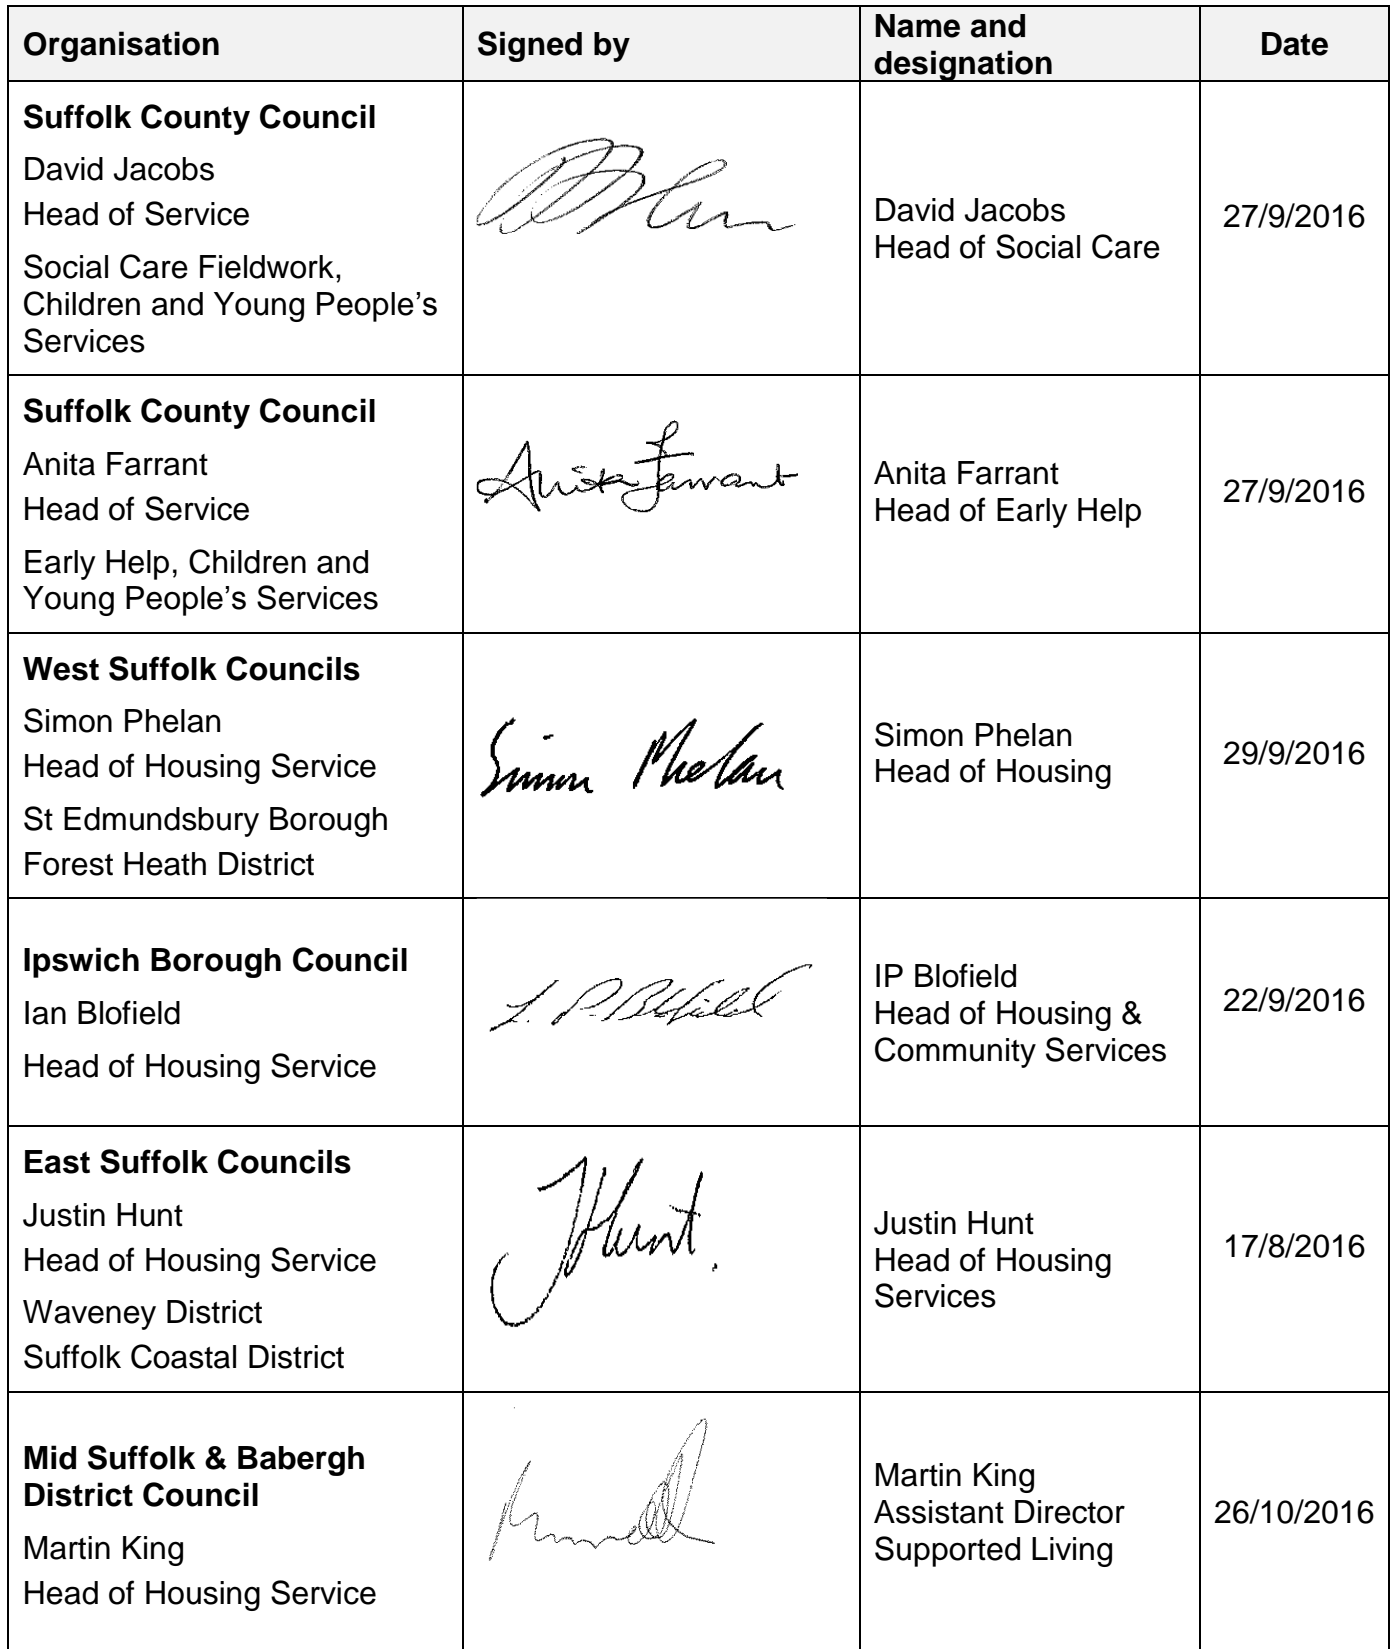 Organisation
Signed by
Name and
designation
Date
Suffolk County Council
David Jacobs
Head of Service
Social Care Fieldwork,
Children and Young People’s
Services
David Jacobs
Head of Social Care
27/9/2016
Suffolk County Council
Anita Farrant
Head of Service
Early Help, Children and
Young People’s Services
Anita Farrant
Anita Farrant
Head of Early Help
27/9/2016
West Suffolk Councils
Simon Phelan
Head of Housing Service
St Edmundsbury Borough
Forest Heath District
Simon Phelan
Simon Phelan
Head of Housing
29/9/2016
Ipswich Borough Council
Ian Blofield
Head of Housing Service
I. P. Blofield
IP Blofield
Head of Housing &
Community Services
22/9/2016
East Suffolk Councils
Justin Hunt
Head of Housing Service
Waveney District
Suffolk Coastal District
JHunt.
Justin Hunt
Head of Housing
Services
17/8/2016
Mid Suffolk & Babergh
District Council
Martin King
Head of Housing Service
Martin King
Assistant Director
Supported Living
26/10/2016